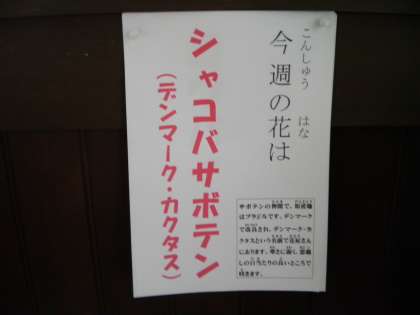 こんしゅう はな
今週の花は
シャコバサボテン
(デンマーク・カクタス)
サボテンの仲間で、原産地
はブラジルです。デンマーク
で改良され、デンマーク・カ
クタスという名前で花屋さん
にあります。寒さに弱く、窓越
しの日当たりの良いところで
咲きます。